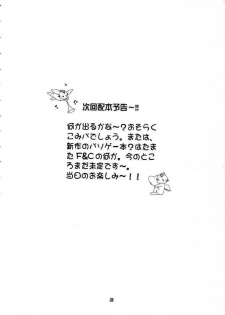 次回配本予告〜!!
何が出るかな〜?おそらく
こみパでしょう。または、
新市のパソゲー本?はたま
た F&Cの何か。今のところ
ろまだ未定です〜。
当日のお楽しみ〜!!